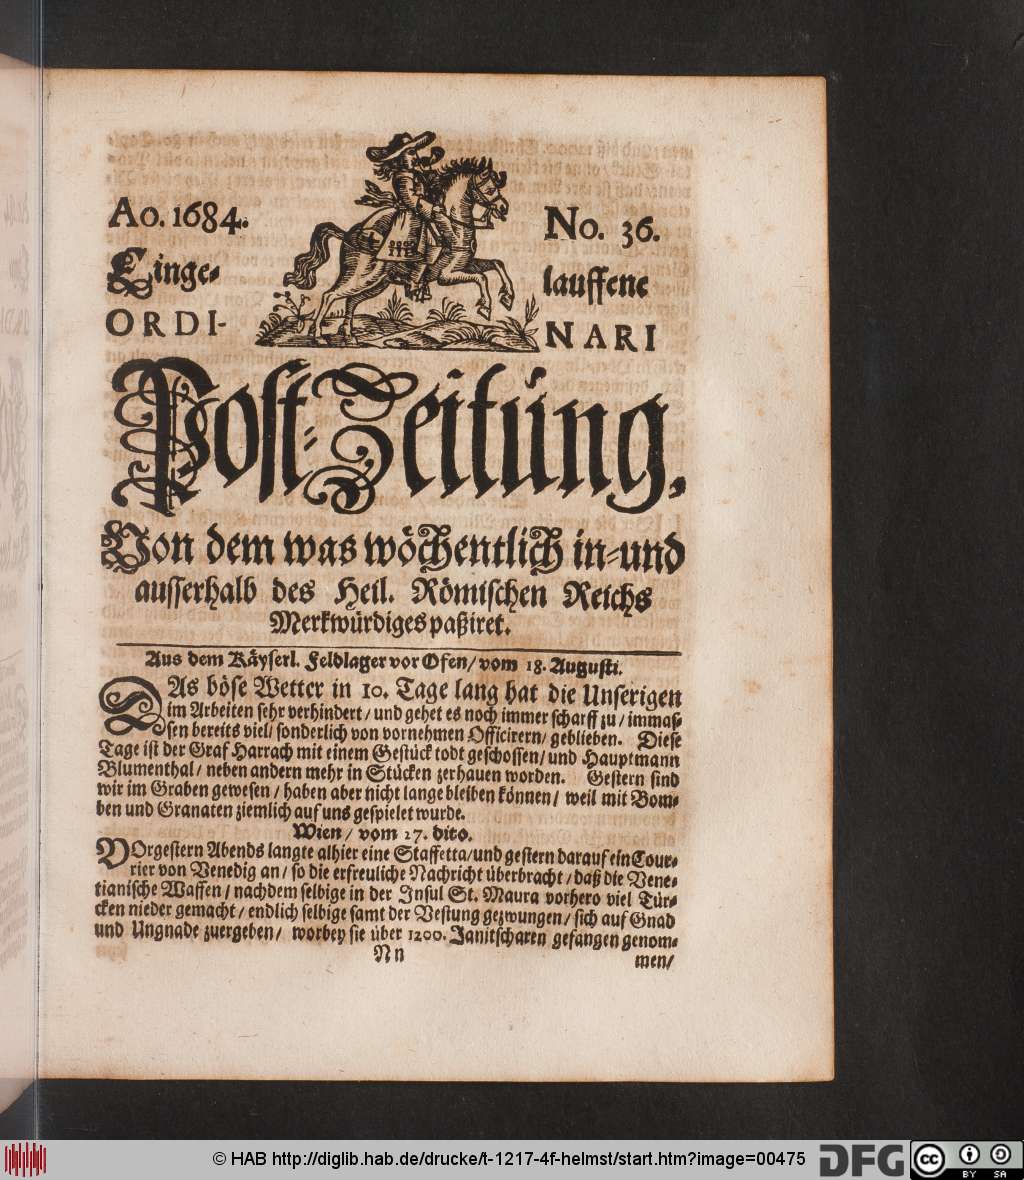 Ao. 1684.
No. 36.
Einge-
lauffene
ORDI-
NARI
Post-Zeitung,
Von dem was wöchentlich in-und
ausserhalb des Heil. Römischen Reichs
Merkwürdiges paßiret.
Aus dem Käyserl. Feldlager vor Ofen/ vom 18. Augusti.
DAs böse Wetter in 10. Tage lang hat die Unserigen
im Arbeiten sehr verhindert/ und gehet es noch immer scharff zu/ immas-
sen bereits viel/ sonderlich von vornehmen Officirern/ geblieben. Diese
Tage ist der Graf Harrach mit einem Gestück todt geschossen/ und Hauptmann
Blumenthal/ neben andern mehr in Stücken zerhauen worden. Gestern sind
wir im Graben gewesen/ haben aber nicht lange bleiben können/ weil mit Bom-
ben und Granaten ziemlich auf uns gespielet wurde.
Wien/ vom 27. dito.
VOrgestern Abends langte alhier eine Staffetta/ und gestern darauf ein Cour-
rier von Venedig an/ so die erfreuliche Nachricht überbracht/ daß die Vene-
tianische Waffen/ nachdem selbige in der Insul St. Maura vorhero viel Tür-
cken nieder gemacht/ endlich selbige samt der Vestung gezwungen/ sich auf Gnad
und Ungnade zuergeben/ worbey sie über 1200. Janitscharen gefangen genom-
Nn
men/
© HAB http://diglib.hab.de/drucke/t-1217-4f-helmst/start.htm?image=00475
DFG
cc
BY SA